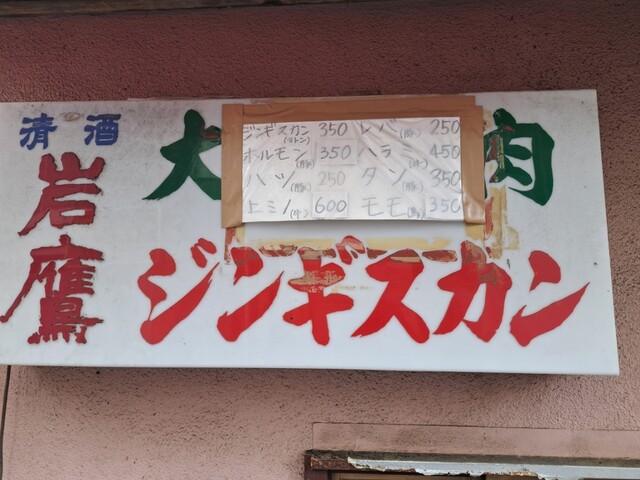 清酒
岩鷹
大
肉
ジンギスカン
ジンギスカン(マトン) 350 レバ(豚) 250
ホルモン(豚) 350 ハラミ(牛) 450
ハツ(豚) 250 タン(豚) 350
上ミノ(牛) 600 モモ(鳥) 350